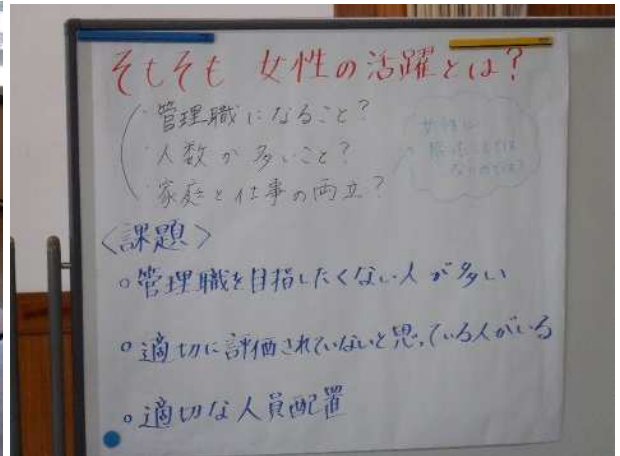 そもそも 女性の活躍とは?
・管理職になること?
・人数が多いこと?
・家庭と仕事の両立?
女性に
<課題>
○管理職を目指したくない人が多い
○適切に評価されていないと思っている人がいる
○適切な人員配置